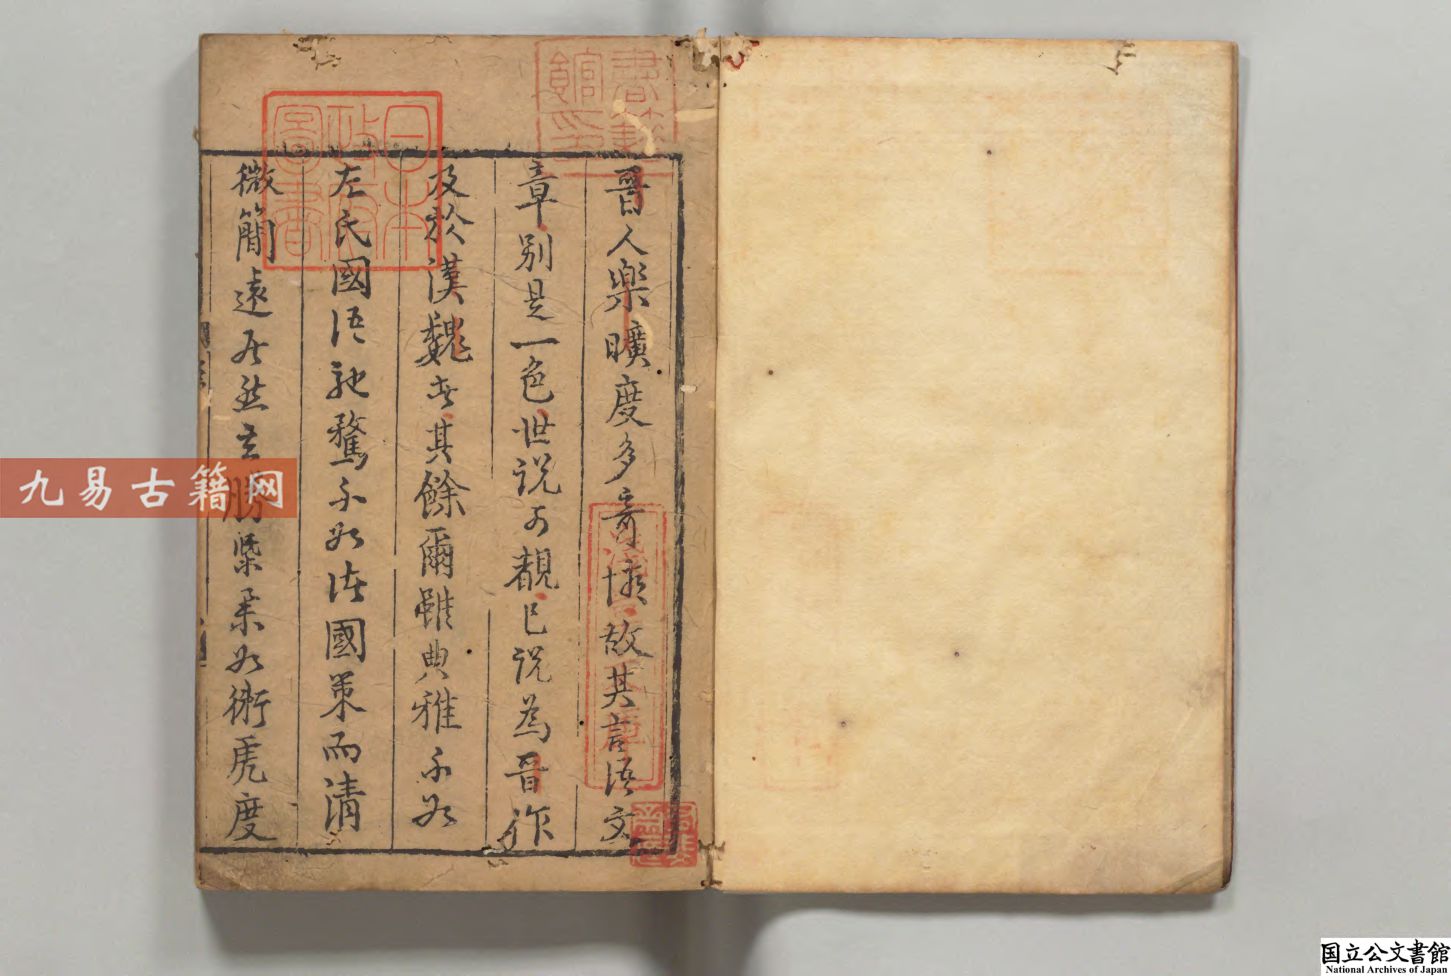 晋人樂曠度多奇情故其言语文
章别是一色世说可觀已说為晋作
及於漢魏者其餘爾雖典雅不如
左氏國语馳騖不如诸國策而清
微簡遠居然玄勝槩柔如衛虎度
日本
政府
圖書
書籍
館印
九易古籍网
国立公文書館
National Archives of Japan